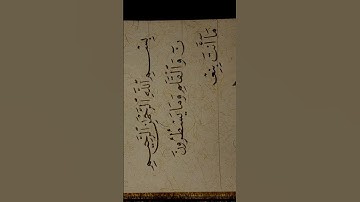 بِسْمِ اللَّهِ الرَّحْمَٰنِ الرَّحِيمِ
نۤ وَالْقَلَمِ وَمَا يَسْطُرُونَ
مَا أَنتَ بِنِعْ